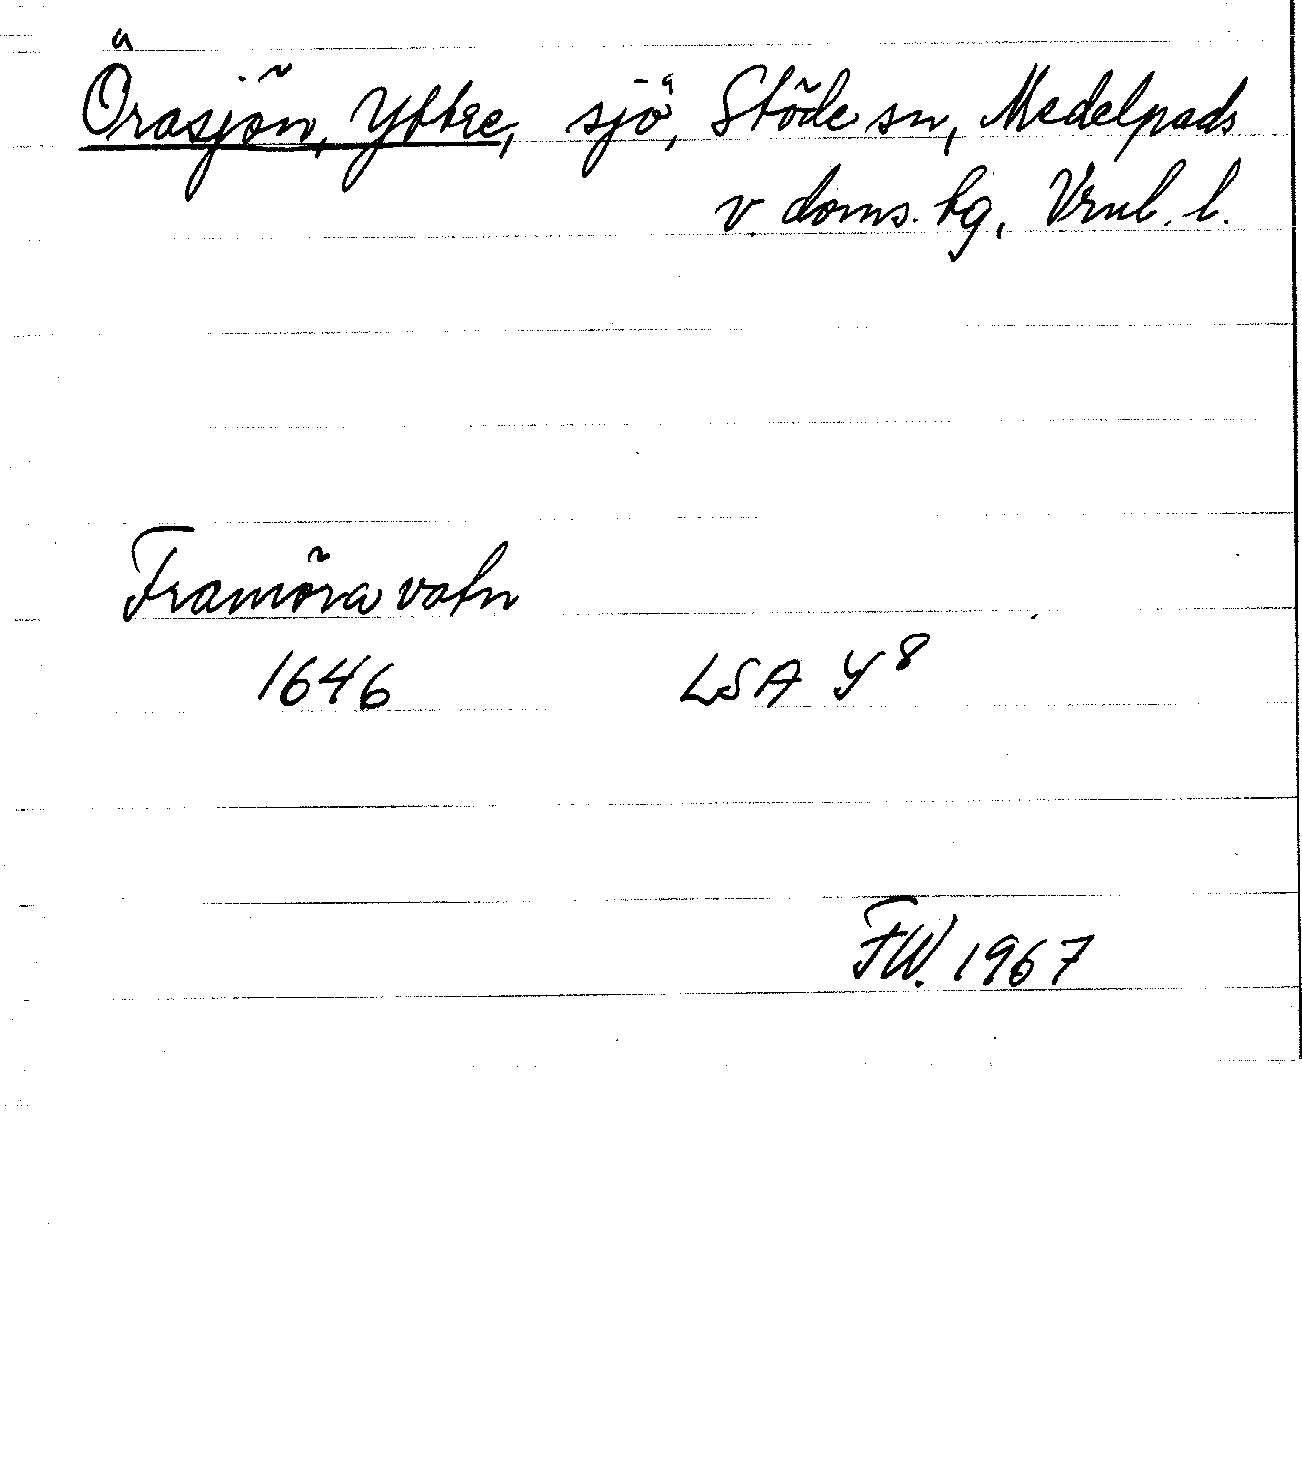 Örasjön, Yttre, sjö, Stöde sn, Medelpads
v. doms. tg, Vrnl. l.
Framöra vatn
1646 LSA Y 8
FW. 1967